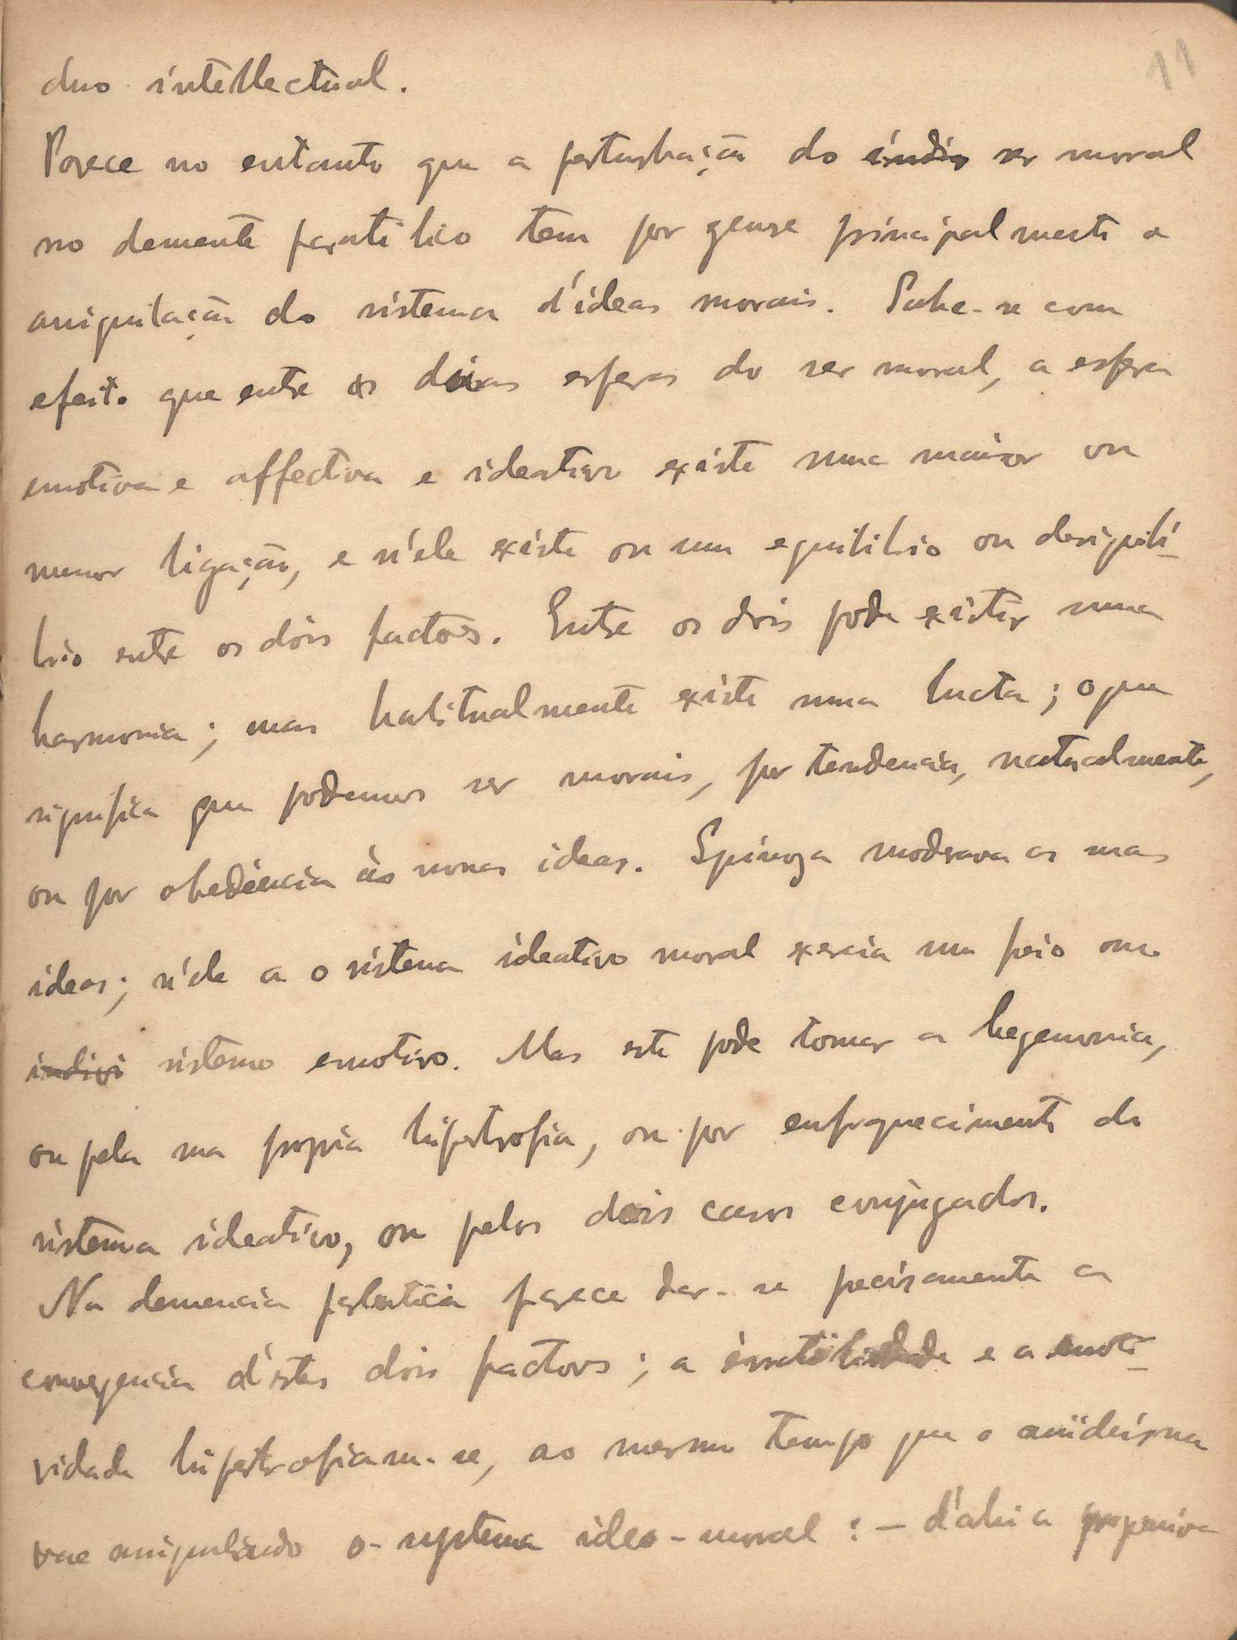 11
duo intellectual.
Parece no entanto que a perturbação do indiv ser moral
no demente paralitico tem por genese principalmente a
aniquilação do sistema d'ideas morais. Sabe-se com
efeito que entre as duas esferas do ser moral, a esfera
emotiva e affectiva e ideativa existe uma maior ou
menor ligação, e n'ele existe ou um equilibrio ou desiquilí-
brio entre os dois factores. Entre os dois pode existir uma
harmonia; mas habitualmente existe uma lucta; o que
significa que podemos ser morais, por tendencia, naturalmente,
ou por obediencia ás nossas ideas. Spinoza moderava as suas
ideas; n'ele a o sistema ideativo moral exercia um freio ao
indivi sistema emotivo. Mas este pode tomar a hegemonia,
ou pela sua propria hipertrofia, ou por enfraquecimento do
sistema ideativo, ou pelos dois casos conjugados.
Na demencia paralitica parece dar-se precisamente a
convergencia d'estes dois factores; a e a emoti-
vidade hipertrofiam-se, ao mesmo tempo que o
vae aniquilando o systema ideo-moral: — d'ahi a